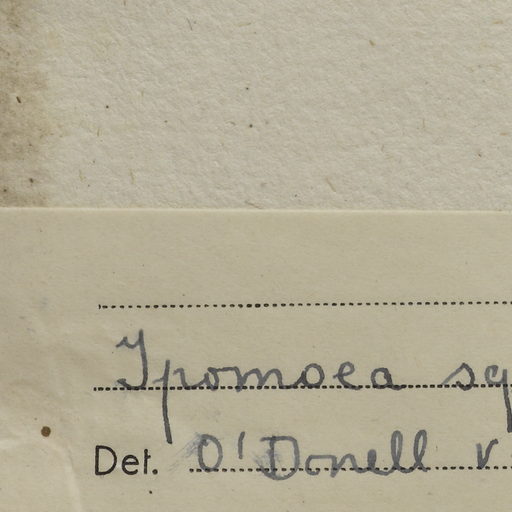 Ipomoea sq
Det. O'Donell v